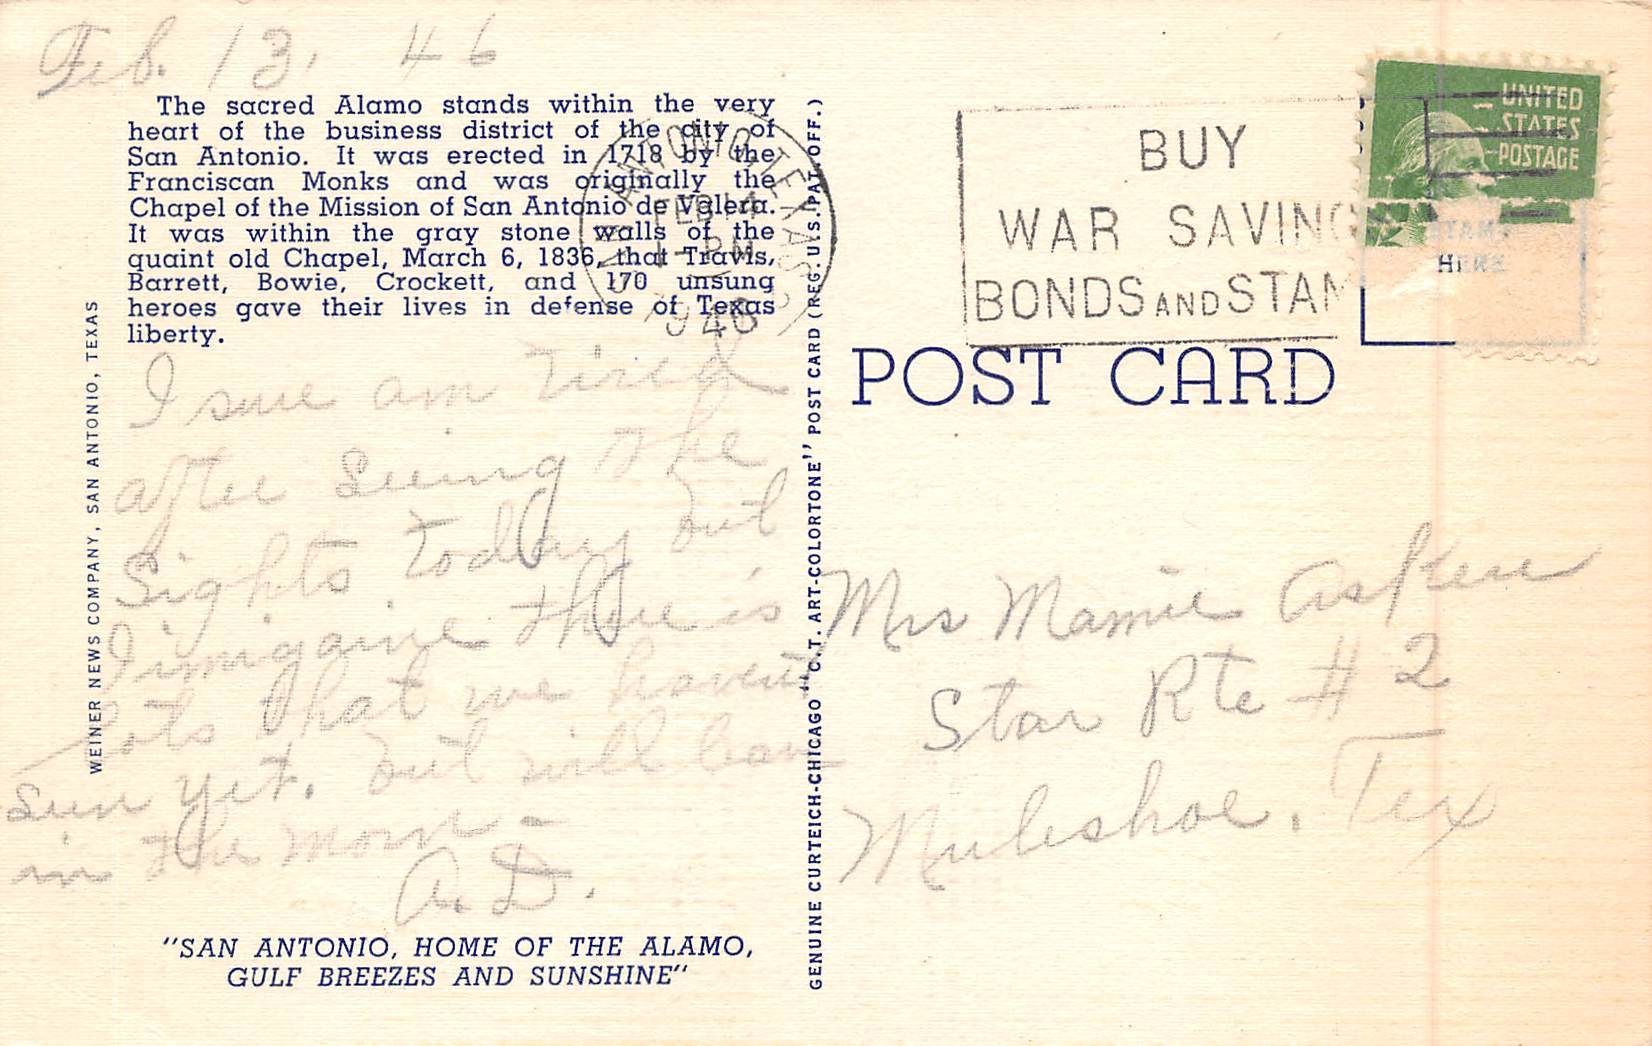 Feb. 13, 46
The sacred Alamo stands within the very
heart of the business district of the city of
San Antonio. It was erected in 1718 by the
Franciscan Monks and was originally the
Chapel of the Mission of San Antonio de Valera.
It was within the gray stone walls of the
quaint old Chapel, March 6, 1836, that Travis,
Barrett, Bowie, Crockett, and 170 unsung
heroes gave their lives in defense of Texas
liberty.
I sure am tired
after seeing the
Sights today but
I imigaine there is
lots that we havent
seen yet. but will leave
in the morn -
A. D.
"SAN ANTONIO, HOME OF THE ALAMO,
GULF BREEZES AND SUNSHINE"
WEINER NEWS COMPANY, SAN ANTONIO, TEXAS
GENUINE CURTEICH-CHICAGO "C.T. ART-COLORTONE" POST CARD (REG. U.S. PAT. OFF.)
SAN ANTONIO, TEXAS
FEB 14
1 - PM
1946
BUY
WAR SAVING
BONDS AND STAM
UNITED
STATES
POSTAGE
STAMP
HERE
POST CARD
Mrs Mamie Askew
Star Rte # 2
Muleshoe, Tex